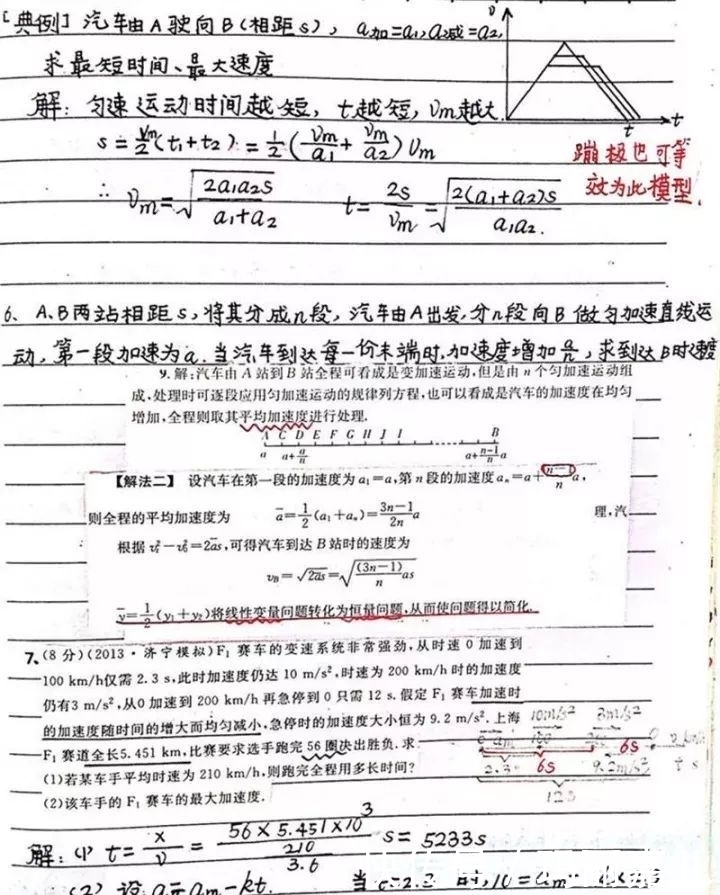 [典例] 汽车由A驶向B(相距s), a加=a₁, a减=a₂,
求最短时间、最大速度
v
解: 匀速运动时间越短, t越短, υm越大
t
t
s = υm/2 (t₁+t₂) = 1/2 (υm/a₁ + υm/a₂) υm
蹦极也可等
效为此模型.
∴ υm = √(2a₁a₂s/(a₁+a₂)) t = 2s/υm = √(2(a₁+a₂)s/(a₁a₂)).
6、A、B两站相距s, 将其分成n段, 汽车由A出发, 分n段向B做匀加速直线运
动, 第一段加速为a. 当汽车到达每一份末端时, 加速度增加a/n, 求到达B时速度
9. 解:汽车由 A 站到 B 站全程可看成是变加速运动,但是由 n 个匀加速运动组
成,处理时可逐段应用匀加速运动的规律列方程,也可以看成是汽车的加速度在均匀
增加,全程则取其平均加速度进行处理.
A C D E F G H J I B
a a+a/n a+(n-1)/n a
【解法二】 设汽车在第一段的加速度为 a₁=a,第 n 段的加速度 aₙ=a+(n-1)/n a,
则全程的平均加速度为 ā=1/2(a₁+aₙ)=(3n-1)/2n a 理,汽
根据 vₜ²-v₀²=2as,可得汽车到达 B 站时的速度为
v_B=√(2ās)=√((3n-1)/n as)
v̄=1/2(v₁+v₂)将线性变量问题转化为恒量问题,从而使问题得以简化.
7、(8 分)(2013·济宁模拟)F₁ 赛车的变速系统非常强劲,从时速 0 加速到
100 km/h仅需 2.3 s,此时加速度仍达 10 m/s²,时速为 200 km/h 时的加速度
仍有3 m/s²,从0 加速到 200 km/h 再急停到 0 只需 12 s. 假定 F₁ 赛车加速时
的加速度随时间的增大而均匀减小,急停时的加速度大小恒为 9.2 m/s². 上海
10m/s² 3m/s²
F₁ 赛道全长5.451 km,比赛要求选手跑完 56 圈决出胜负.求:
6s
(1)若某车手平均时速为 210 km/h,则跑完全程用多长时间?
2.3 6s 9.2m/s² t s
(2)该车手的 F₁ 赛车的最大加速度.
12s
解: (1) t = x/υ = 56×5.451×10³/(210/3.6) s = 5233s
(2) 设 a = am - kt.